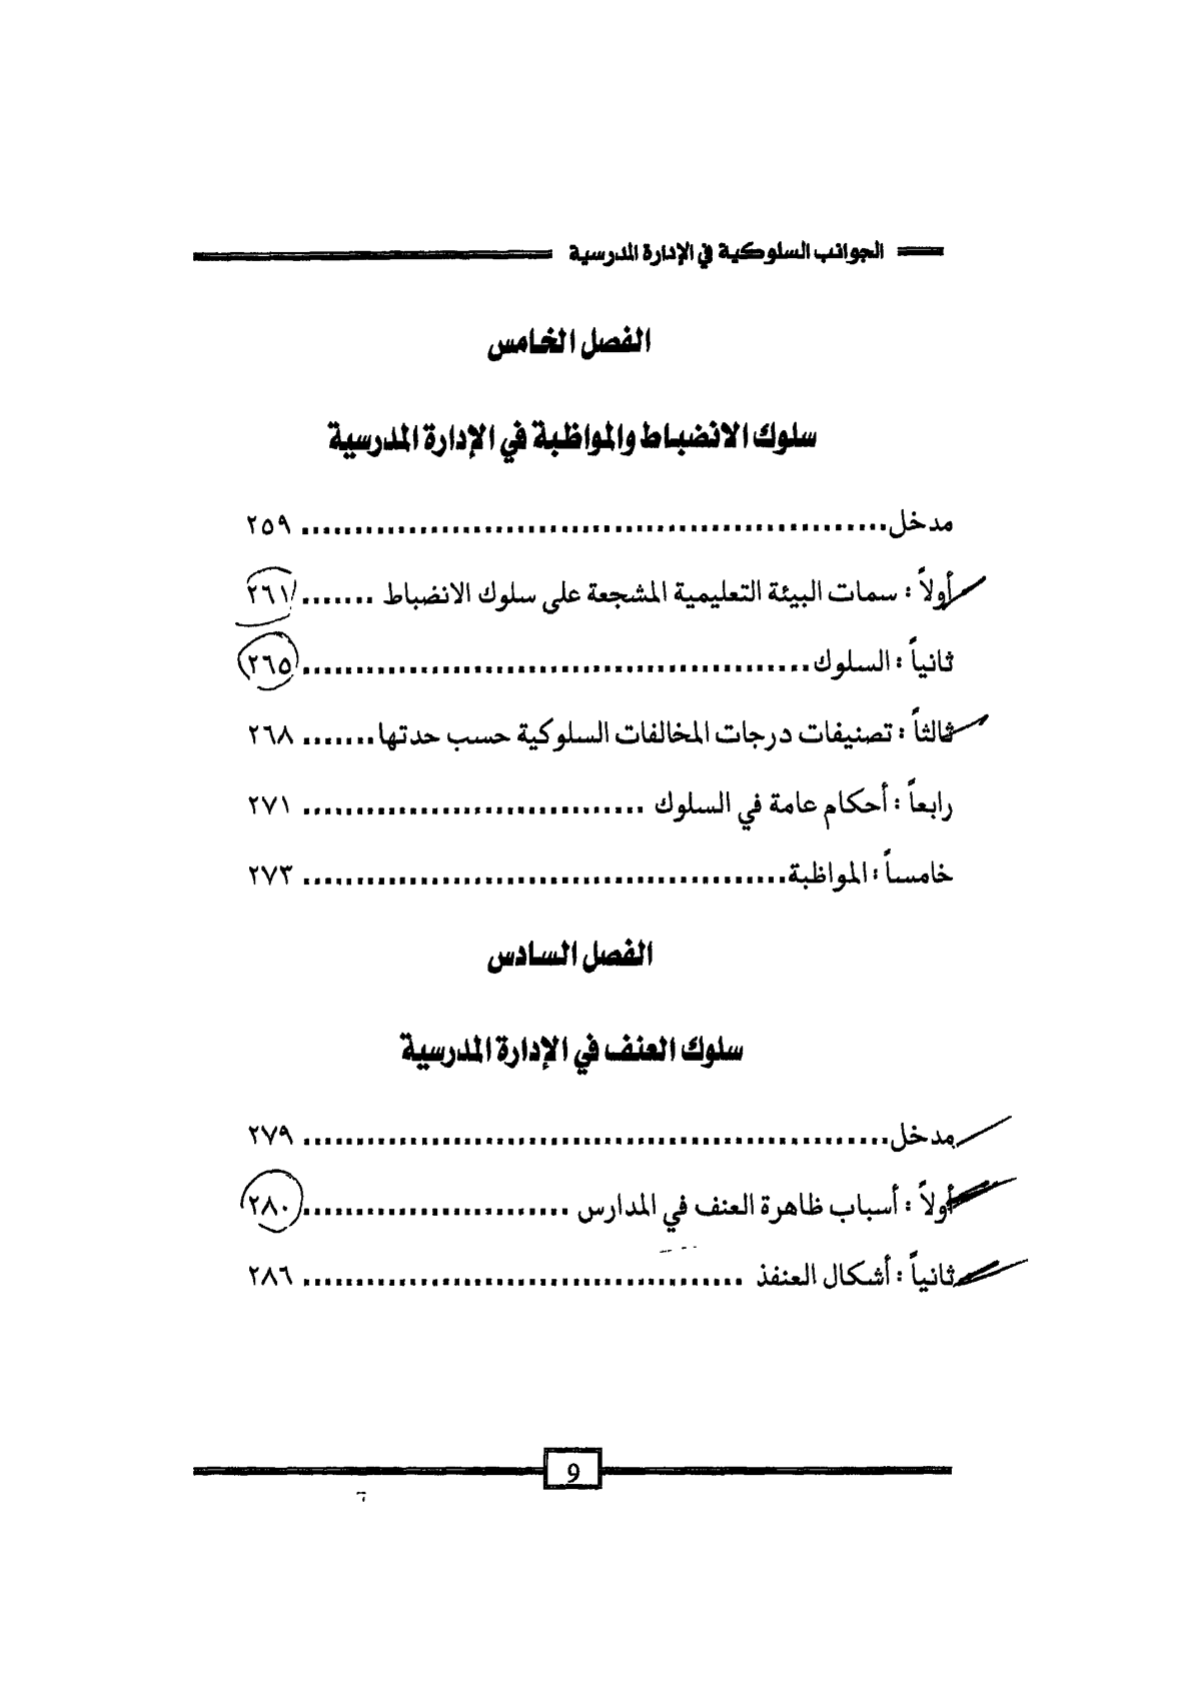 الجوانب السلوكية في الإدارة المدرسية
الفصل الخامس
سلوك الانضباط والمواظبة في الإدارة المدرسية
مدخل ........................................................ ٢٥٩
أولاً : سمات البيئة التعليمية المشجعة على سلوك الانضباط ....... ٢٦١
ثانياً : السلوك ................................................ ٢٦٥
ثالثاً : تصنيفات درجات المخالفات السلوكية حسب حدتها ....... ٢٦٨
رابعاً : أحكام عامة في السلوك ................................ ٢٧١
خامساً : المواظبة .............................................. ٢٧٣
الفصل السادس
سلوك العنف في الإدارة المدرسية
مدخل ........................................................ ٢٧٩
أولاً : أسباب ظاهرة العنف في المدارس ......................... ٢٨٠
ثانياً : أشكال العنفذ .......................................... ٢٨٦
9